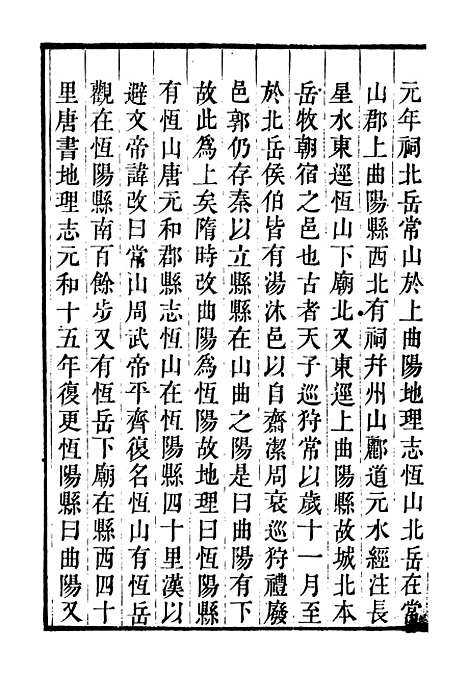 元年祠北岳常山於上曲陽地理志恆山北岳在常
山郡上曲陽縣西北有祠幷州山酈道元水經注長
星水東逕恆山下廟北又東逕上曲陽縣故城北本
岳牧朝宿之邑也古者天子巡狩常以歲十一月至
於北岳侯伯皆有湯沐邑以自齋潔周衰巡狩禮廢
邑郭仍存秦以立縣縣在山曲之陽是曰曲陽有下
故此為上矣隋時改曲陽為恆陽故地理曰恆陽縣
有恆山唐元和郡縣志恆山在恆陽縣四十里漢以
避文帝諱改曰常山周武帝平齊復名恆山有恆岳
觀在恆陽縣南百餘步又有恆岳下廟在縣西四十
里唐書地理志元和十五年復更恆陽縣曰曲陽又